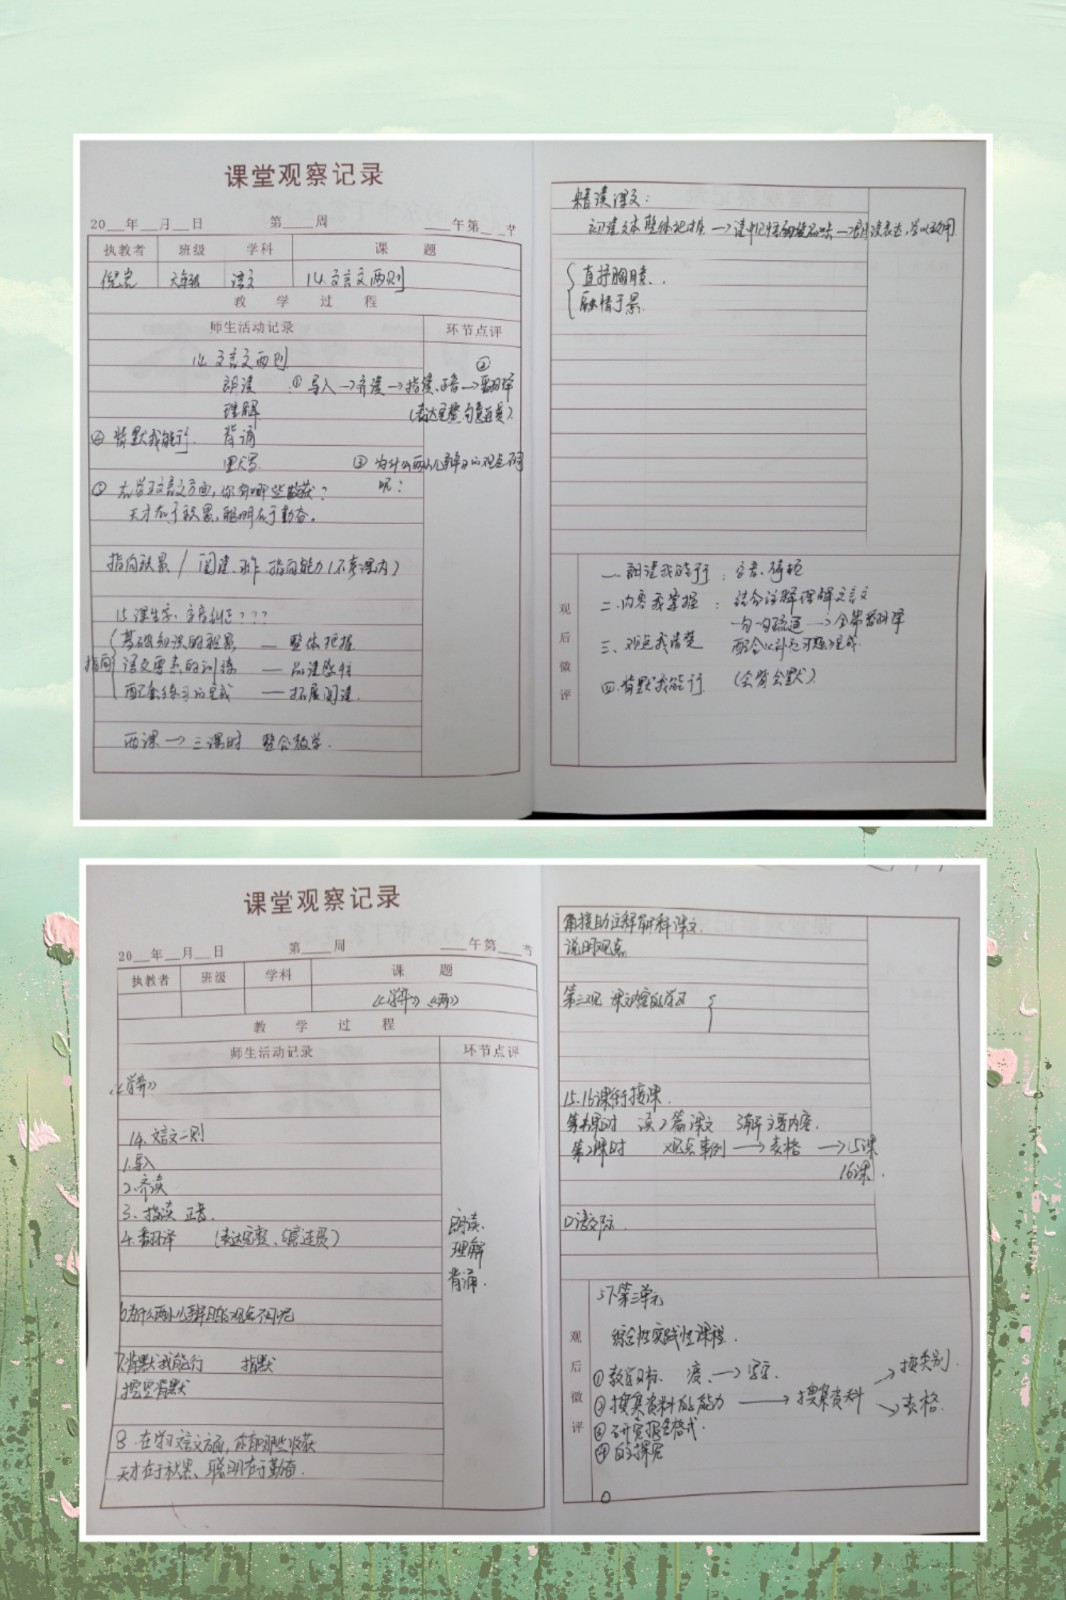 课堂观察记录
20__年__月__日 第__周 __午第__节
执教者 班级 学科 课题
六年级 语文 14.文言文两则
教学过程
师生活动记录 环节点评
14.文言文两则
朗读 ①导入→齐读→指读、正音→②翻译
理解 (表达完整、句意连贯)
④背默我能行. 背诵
默写 ③为什么两小儿辩日的观点不同
呢?
⑤在学习文言文方面,你有哪些收获?
天才在于积累,聪明在于勤奋。
指向积累 / 阅读、习作 指向能力(不考课内)
15.课生字、
指向 基础知识的积累 — 整体把握
语文要素的训练 — 品读感悟
配套练习的完成 — 拓展阅读.
两课→三课时 整合教学.
精读课文:
初读文本整体把握→
直抒胸臆..
融情于景.
观后微评
一.朗读我能行:字音、停顿
二.内容我掌握:结合注解理解文言文
一句一句疏通→全篇翻译
三、观点我清楚
四.背默我能行. (会背会默)
课堂观察记录
20__年__月__日 第__周 __午第__节
执教者 班级 学科 课题
《学弈》《两》
教学过程
师生活动记录 环节点评
《学弈》
14.文言文二则
1.导入
2.齐读
3.指读 正音.
4.翻译 (表达完整、句意连贯)
朗读.
理解
背诵.
6.为什么两小儿辩日的观点不同呢
7.背默我能行 指默
挖空背默
8.在学习文言文方面,你有哪些收获
天才在于积累、聪明在于勤奋.
借助注释解释课文.
说明观点
15.16课衔接课.
读2篇课文 了解主要内容.
第2课时 观点 事例→表格→15课
16课.
观后微评
5下第三单元
综合性实践性课程.
①教学目标
②搜集资料的能力→搜集资料
按类别.
表格.
③研究报告格式.